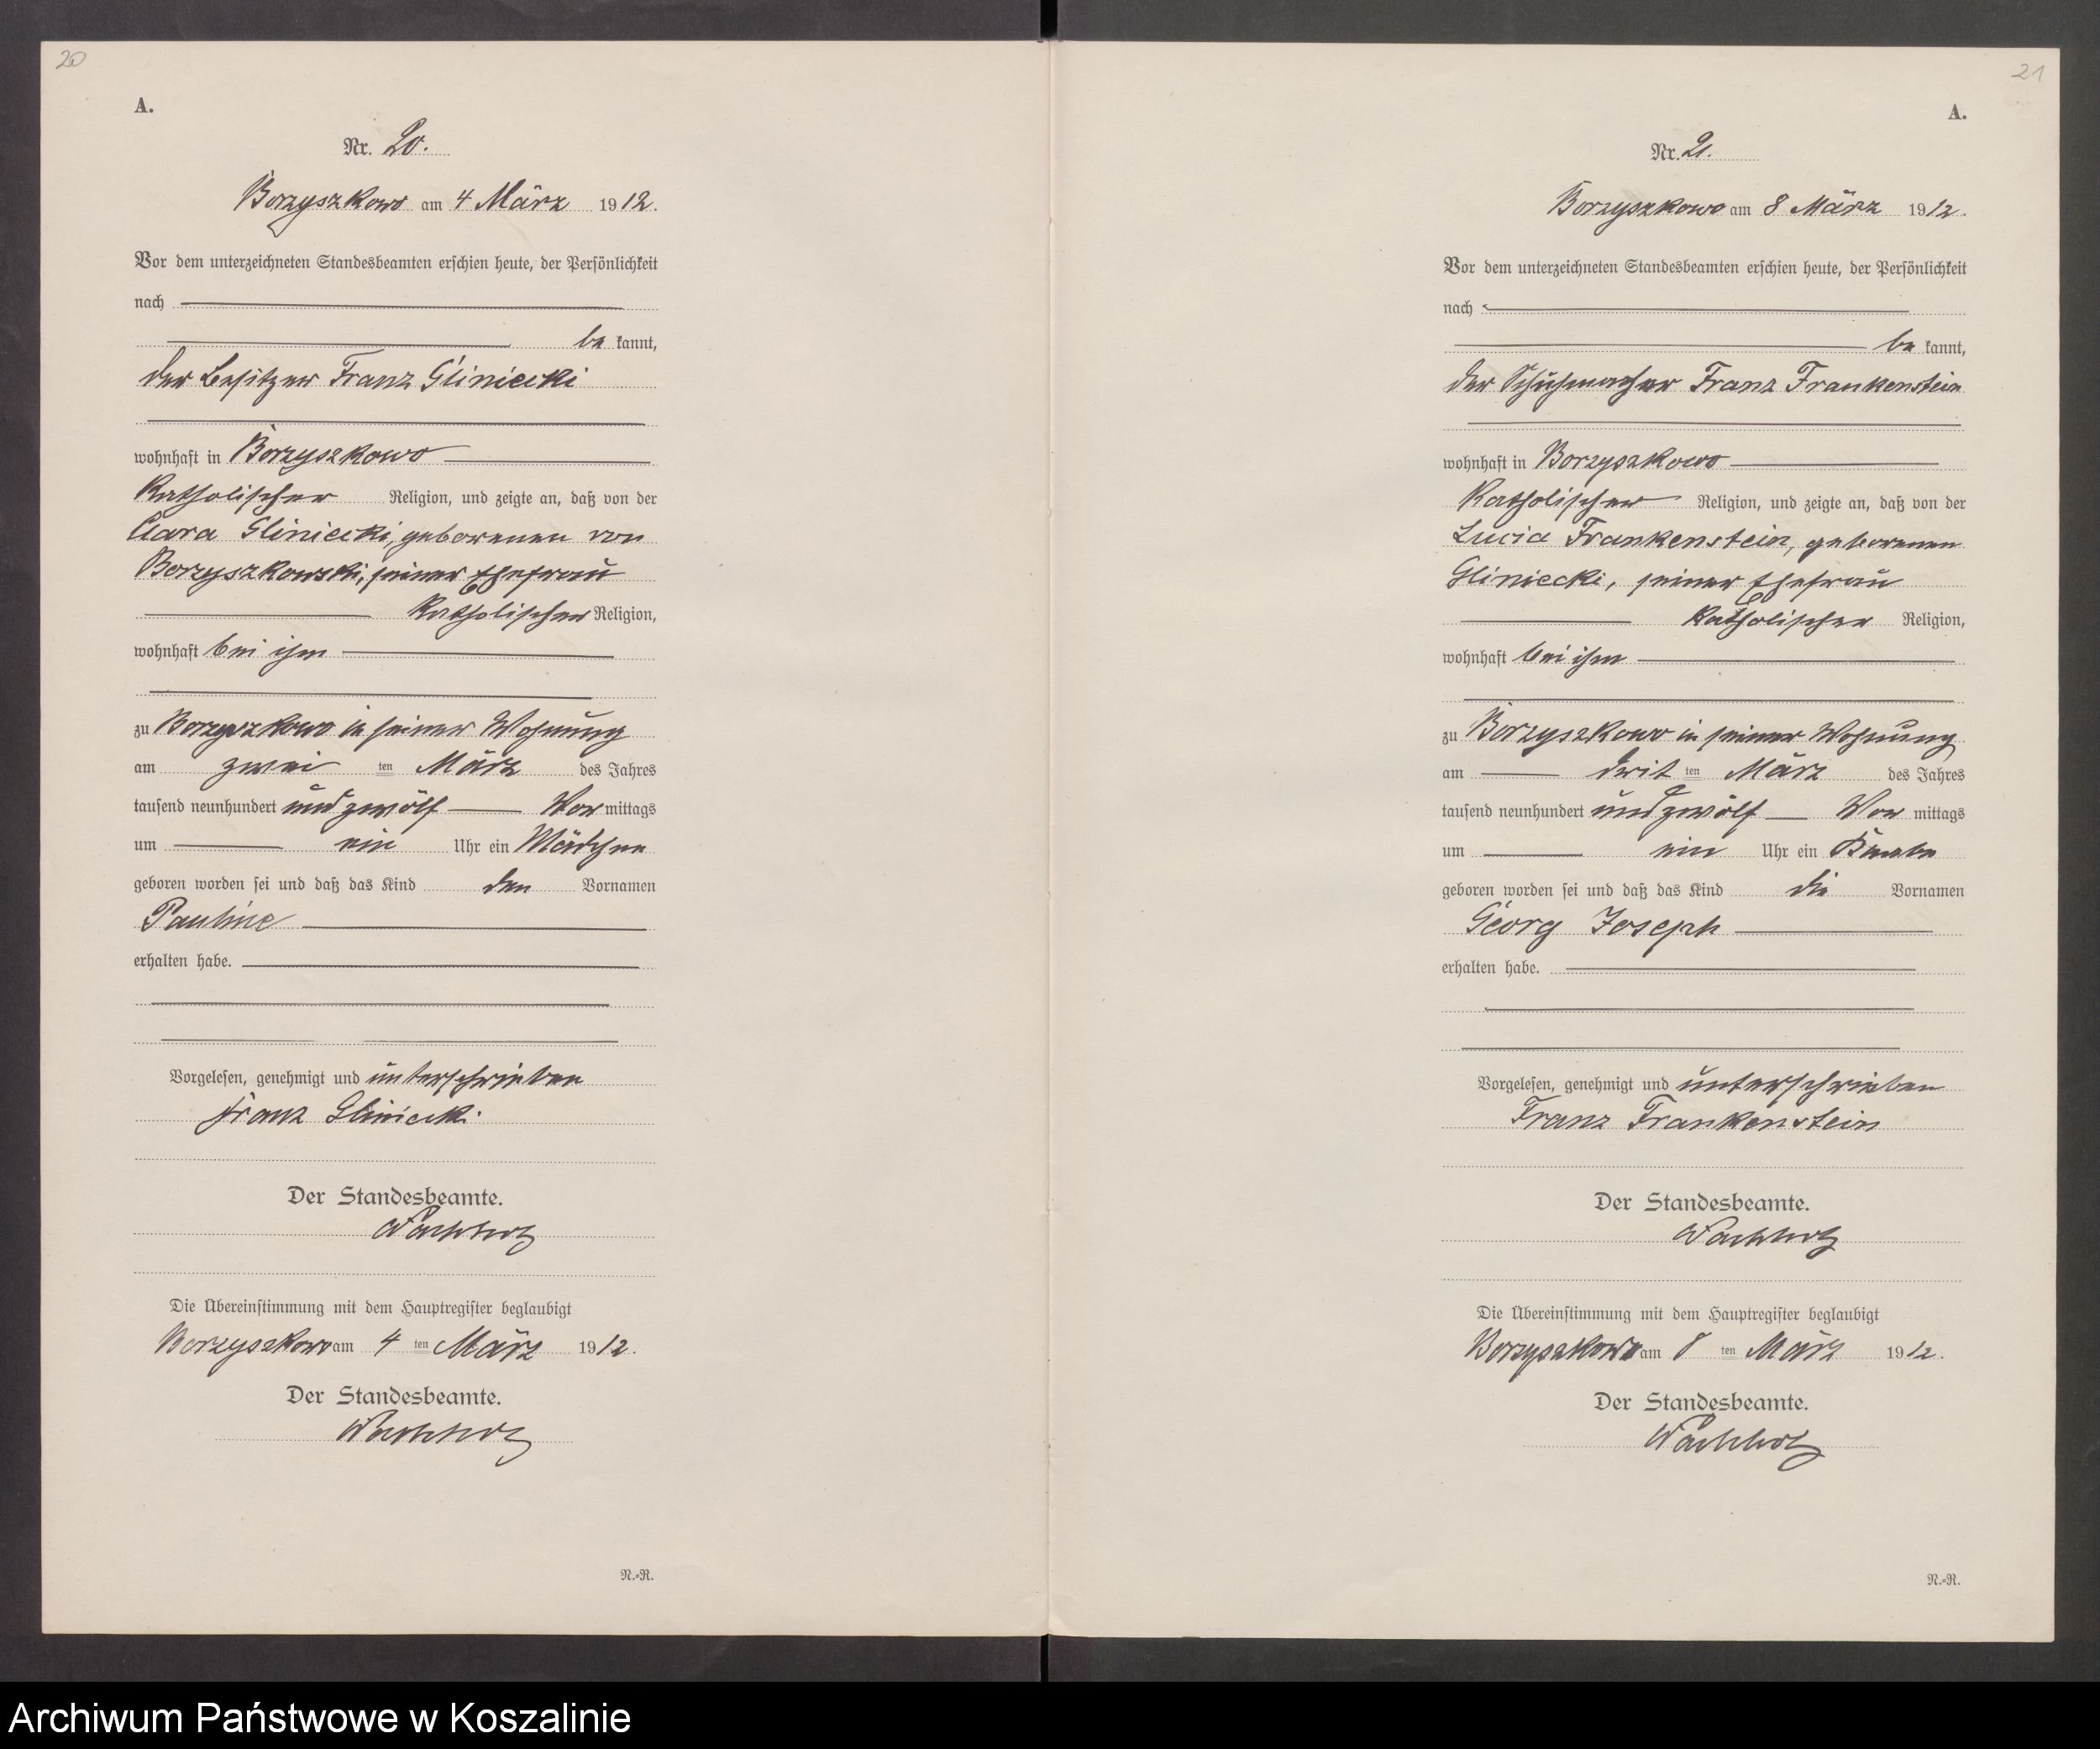 20
A.
Nr. 20.
Borzyszkowo am 4 März 1912.
Vor dem unterzeichneten Standesbeamten erschien heute, der Persönlichkeit
nach
be kannt,
der Besitzer Franz Gliniecki
wohnhaft in Borzyszkowo
katholischer Religion, und zeigte an, daß von der
Clara Gliniecki, geborenen von
Borzyszkowski, seiner Ehefrau
katholischer Religion,
wohnhaft bei ihm
zu Borzyszkowo in seiner Wohnung
am zwei ten März des Jahres
tausend neunhundert und zwölf Vor mittags
um ein Uhr ein Mädchen
geboren worden sei und daß das Kind den Vornamen
Pauline
erhalten habe.
Vorgelesen, genehmigt und unterschrieben
Franz Gliniecki
Der Standesbeamte.
Wachholz
Die Übereinstimmung mit dem Hauptregister beglaubigt
Borzyszkowo am 4 ten März 1912.
Der Standesbeamte.
Wachholz
N.=R.
21
A.
Nr. 21.
Borzyszkowo am 8 März 1912.
Vor dem unterzeichneten Standesbeamten erschien heute, der Persönlichkeit
nach
be kannt,
der Schuhmacher Franz Frankenstein
wohnhaft in Borzyszkowo
katholischer Religion, und zeigte an, daß von der
Lucia Frankenstein, geborenen
Gliniecki, seiner Ehefrau
katholischer Religion,
wohnhaft bei ihm
zu Borzyszkowo in seiner Wohnung
am drit ten März des Jahres
tausend neunhundert und zwölf Vor mittags
um ein Uhr ein Knabe
geboren worden sei und daß das Kind die Vornamen
Georg Joseph
erhalten habe.
Vorgelesen, genehmigt und unterschrieben
Franz Frankenstein
Der Standesbeamte.
Wachholz
Die Übereinstimmung mit dem Hauptregister beglaubigt
Borzyszkowo am 8 ten März 1912.
Der Standesbeamte.
Wachholz
N.=R.
Archiwum Państwowe w Koszalinie